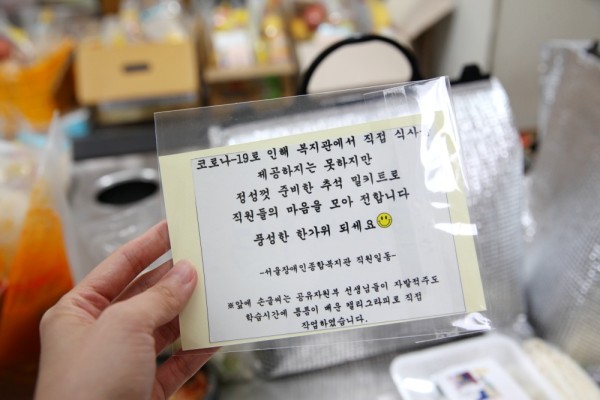 코로나-19로 인해 복지관에서 직접 식사
제공하지는 못하지만
정성껏 준비한 추석 밀키트로
직원들의 마음을 모아 전합니다
풍성한 한가위 되세요
-서울장애인종합복지관 직원일동-
※앞에 손글씨는 공유자원부 선생님들이 자발적주도
학습시간에 틈틈이 배운 캘리그라피로 직접
작업하였습니다.